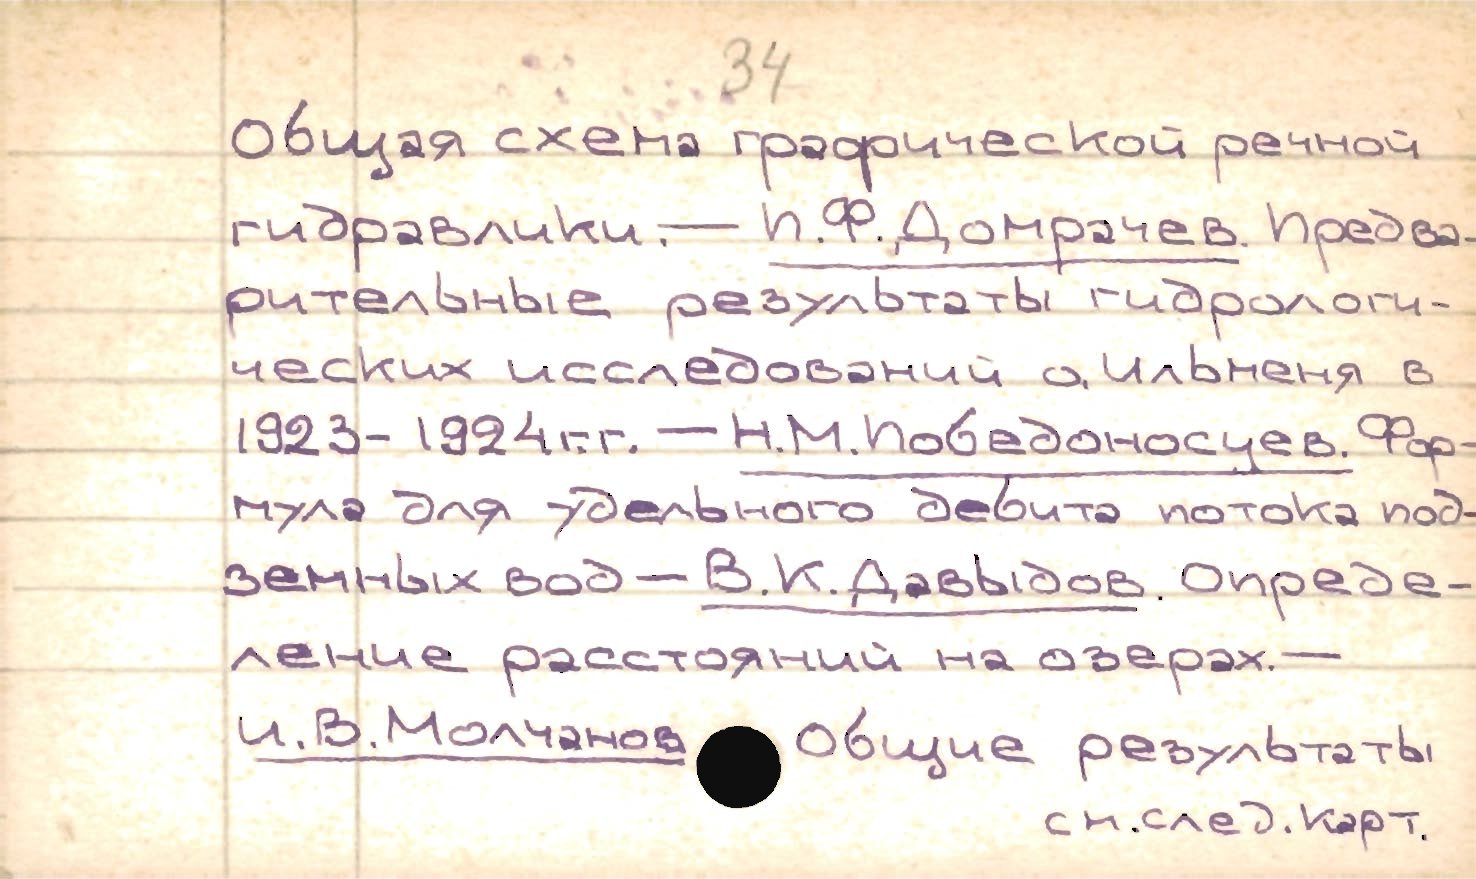 34
Общая схема графической речной
гидравлики. — П.Ф. Домрачев. Предва-
рительные результаты гидрологи-
ческих исследований о. Ильменя в
1923-1924 г.г. — Н.М. Победоносцев. Фор-
мула для удельного дебита потока под-
земных вод — В.К. Давыдов. Опреде-
ление расстояний на озерах. —
И.В. Молчанов Общие результаты
см. след. карт.